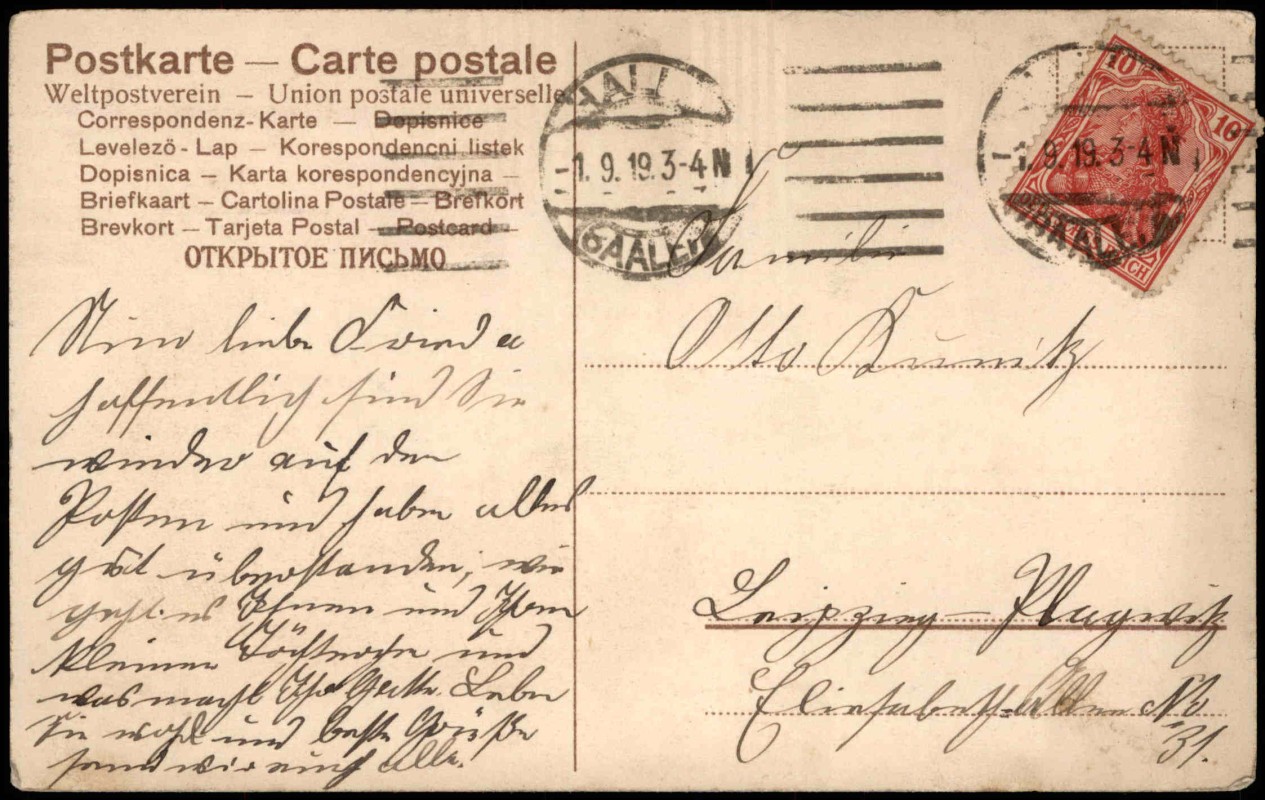 Postkarte — Carte postale
Weltpostverein — Union postale universelle
Correspondenz-Karte — Dopisnice
Levelező-Lap — Korespondencni listek
Dopisnica — Karta korespondencyjna —
Briefkaart — Cartolina Postale — Brefkort
Brevkort — Tarjeta Postal — Postcard —
ОТКРЫТОЕ ПИСЬМО
liebe Frieda
hoffentlich sind Sie
wieder auf den
Posten und haben alles
gut überstanden, wie
geht es Ihnen und Ihren
kleinen Töchterchen und
was macht Ihr Gatte. Leben
Sie wohl und beste Grüße
HALLE
-1.9.19.3-4N
(SAALE)
-1.9.19.3-4N
10
10
Familie
Otto Kunitz
Leipzig-Plagwitz
Elisabeth-Allee No
31.